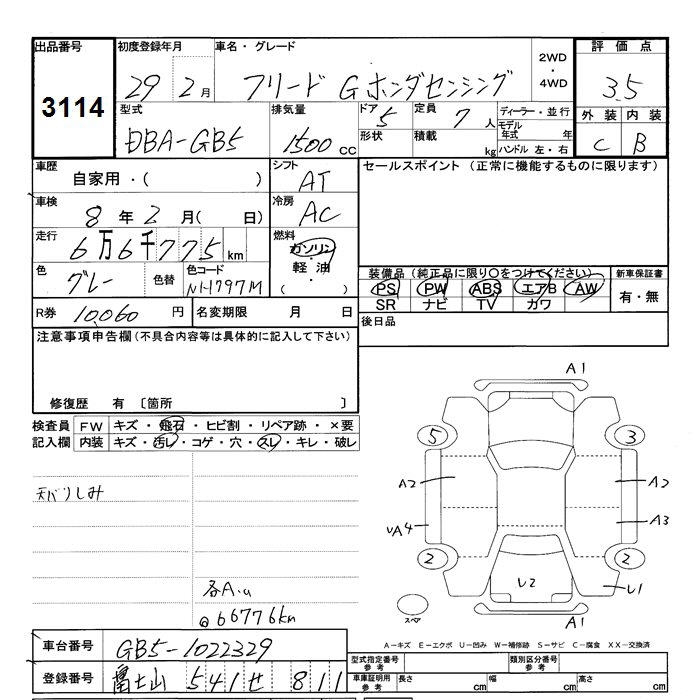 出品番号 初度登録年月 車名・グレード 2WD・4WD 評価点
3114 29 2月 フリード Gホンダセンシング 3.5
型式 排気量 ドア 定員 ディーラー・並行 外装 内装
DBA-GB5 1500cc 5 7人 モデル年式 年 C B
形状 積載 kg ハンドル 左・右
車歴 シフト セールスポイント (正常に機能するものに限ります)
自家用・( ) AT
車検 冷房
8年 2月( 日) AC
走行 燃料
6万6千775km ガソリン・軽油・( )
色 色替 色コード 装備品(純正品に限り○をつけてください) 新車保証書
グレー NH797M PS PW ABS エアB AW 有・無
SR ナビ TV カワ
R券 10,060円 名変期限 月 日 後日品
注意事項申告欄(不具合内容等は具体的に記入して下さい)
修復歴 有 〔箇所 〕
検査員 FW キズ・飛石・ヒビ割・リペア跡・×要
記入欄 内装 キズ・汚レ・コゲ・穴・スレ・キレ・破レ
天バリしみ
各A.u
@66776km
A1
5 3
A2 A2
UA4 A3
2 2
U2 U1
スペア A1
A-キズ E-エクボ U-凹み W-補修跡 S-サビ C-腐食 XX-交換済
車台番号 GB5-1022329
型式指定番号 参考 類別区分番号 参考
登録番号 富士山 541 せ 811
車庫証明用 参考 長さ cm 幅 cm 高さ cm